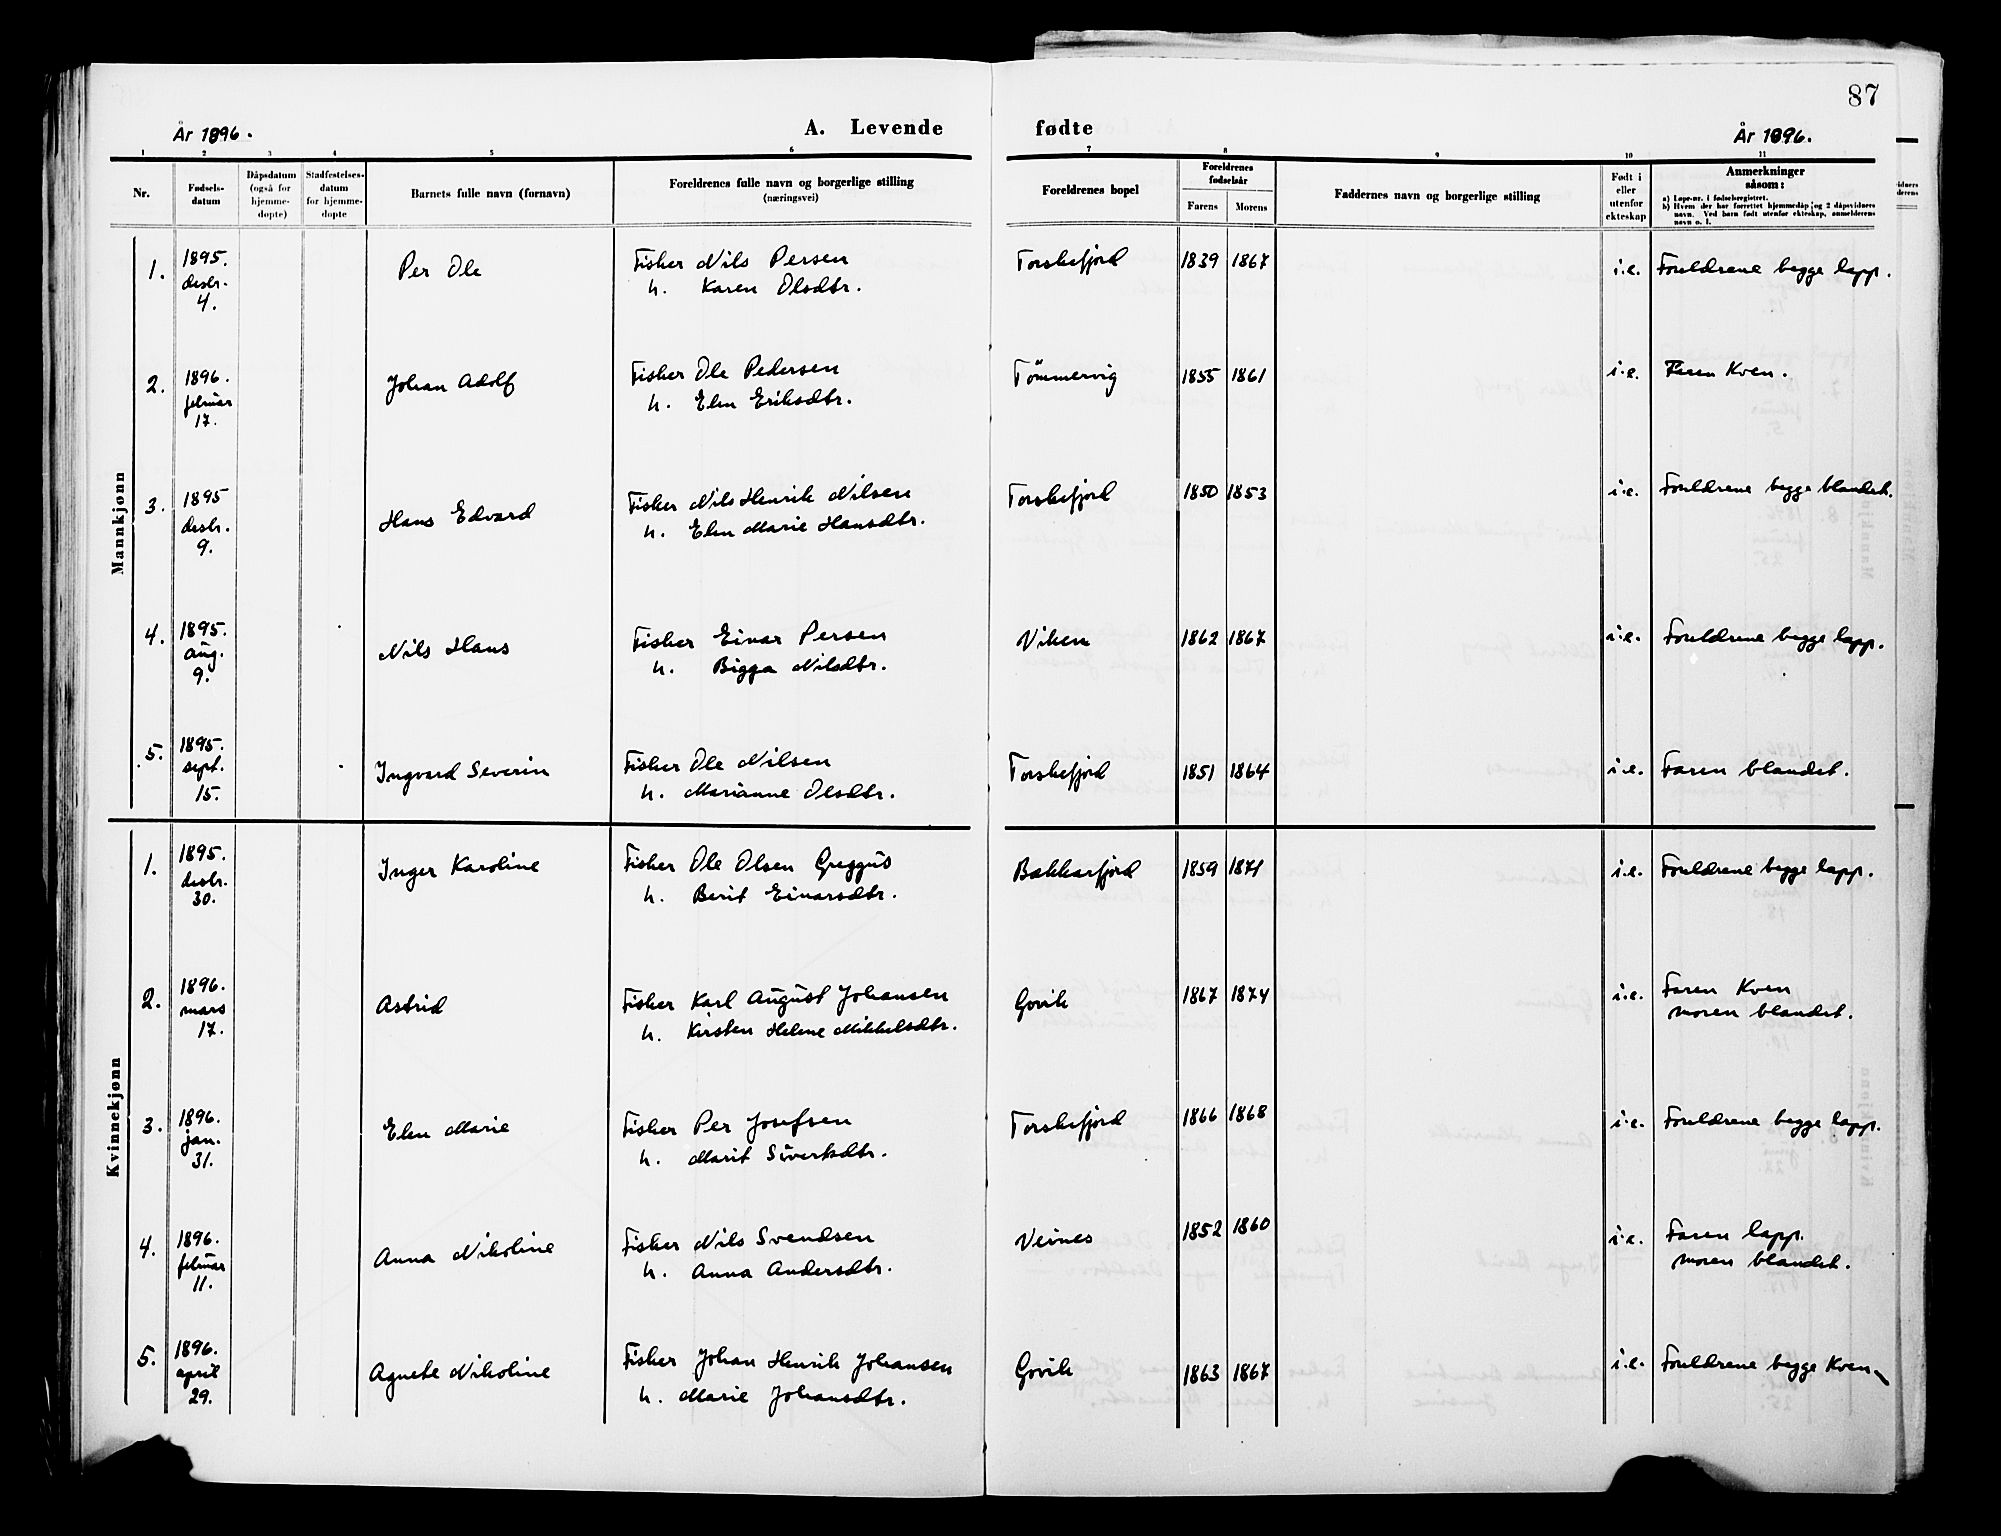 87
År 1896.
A. Levende fødte
År 1896.
1 2 3 4 5 6 7 8 9 10 11
Nr.
Fødsels-
datum
Dåpsdatum
(også for
hjemme-
døpte)
Stadfestelses-
datum
for hjemme-
døpte
Barnets fulle navn (fornavn)
Foreldrenes fulle navn og borgerlige stilling
(næringsvei)
Foreldrenes bopel
Foreldrenes
fødselsår
Farens Morens
Faddernes navn og borgerlige stilling
Født i
eller
utenfor
ekteskap
Anmerkninger
såsom:
a) Løpe-nr. i fødselsregistret.
b) Hvem der har forrettet hjemmedåp og 2 dåpsvidners
navn. Ved barn født utenfor ekteskap, anmelderens
navn o. l.
Mannkjønn
1. 1895. desbr. 4. Per Ole Fisker Nils Persen Torskefjord 1839 1867 i.e. Foreldrene begge lapp.
h. Karen Olsdtr.
2. 1896. februar 17. Johan Adolf Fisker Ole Pedersen Tömmervig 1855 1861 i.e. Kven.
h. Elen Eriksdtr.
3. 1895 desbr. 9. Hans Edvard Fisker Nils Henrik Nilsen Torskefjord 1850 1853 i.e. Foreldrene begge blandet.
h. Elen Marie Hansdtr.
4. 1895. aug. 9. Nils Hans Fisker Einar Persen Viken 1862 1867 i.e. Foreldrene begge lapp.
h. Bigga Nilsdtr.
5. 1895. sept. 15. Ingvard Severin Fisker Ole Nilsen Torskefjord 1851 1864 i.e. Faren blandet.
h. Marianne Olsdtr.
Kvinnekjønn
1. 1895. desbr. 30. Inger Karoline Fisker Ole Olsen Greggus Bakkarfjord 1859 1871 i.e. Foreldrene begge lapp.
h. Berit Einarsdtr.
2. 1896. mars 17. Astrid Fisker Karl August Johansen Govik 1867 1874 i.e. Faren Kven
h. Kirsten Helene Mikkelsdtr. moren blandet.
3. 1896. jan. 31. Elen Marie Fisker Per Josefsen Torskefjord 1866 1868 i.e. Foreldrene begge lapp.
h. Marit Sivertsdtr.
4. 1896. februar 11. Anna Nikoline Fisker Nils Svendsen Veines 1852 1860 i.e. Faren lapp.
h. Anna Andersdtr. moren blandet.
5. 1896. april 29. Agnete Nikoline Fisker Johan Henrik Johansen Govik 1863 1867 i.e. Foreldrene begge Kven
h. Marie Johansdtr.